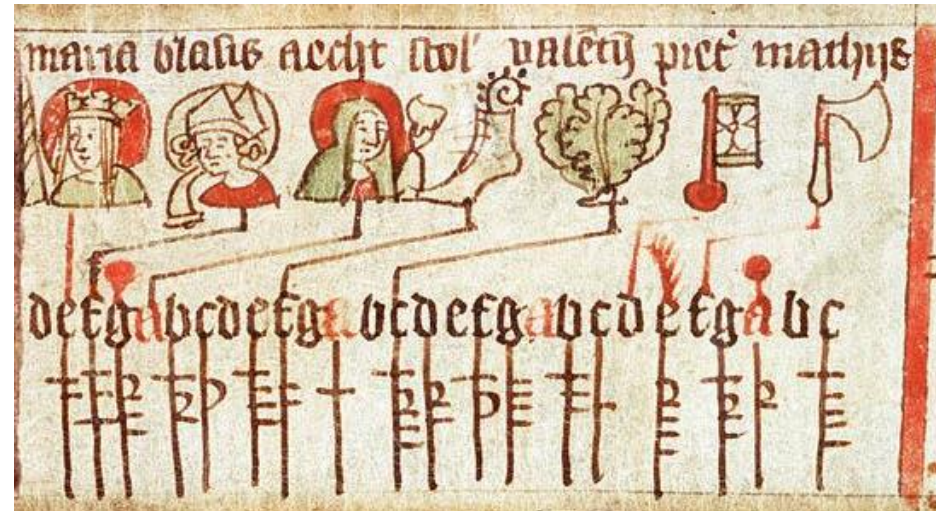 maria blasiꝰ aecht scol' valētij mathijs
defgabcdefgabcdefgabcdefgabc